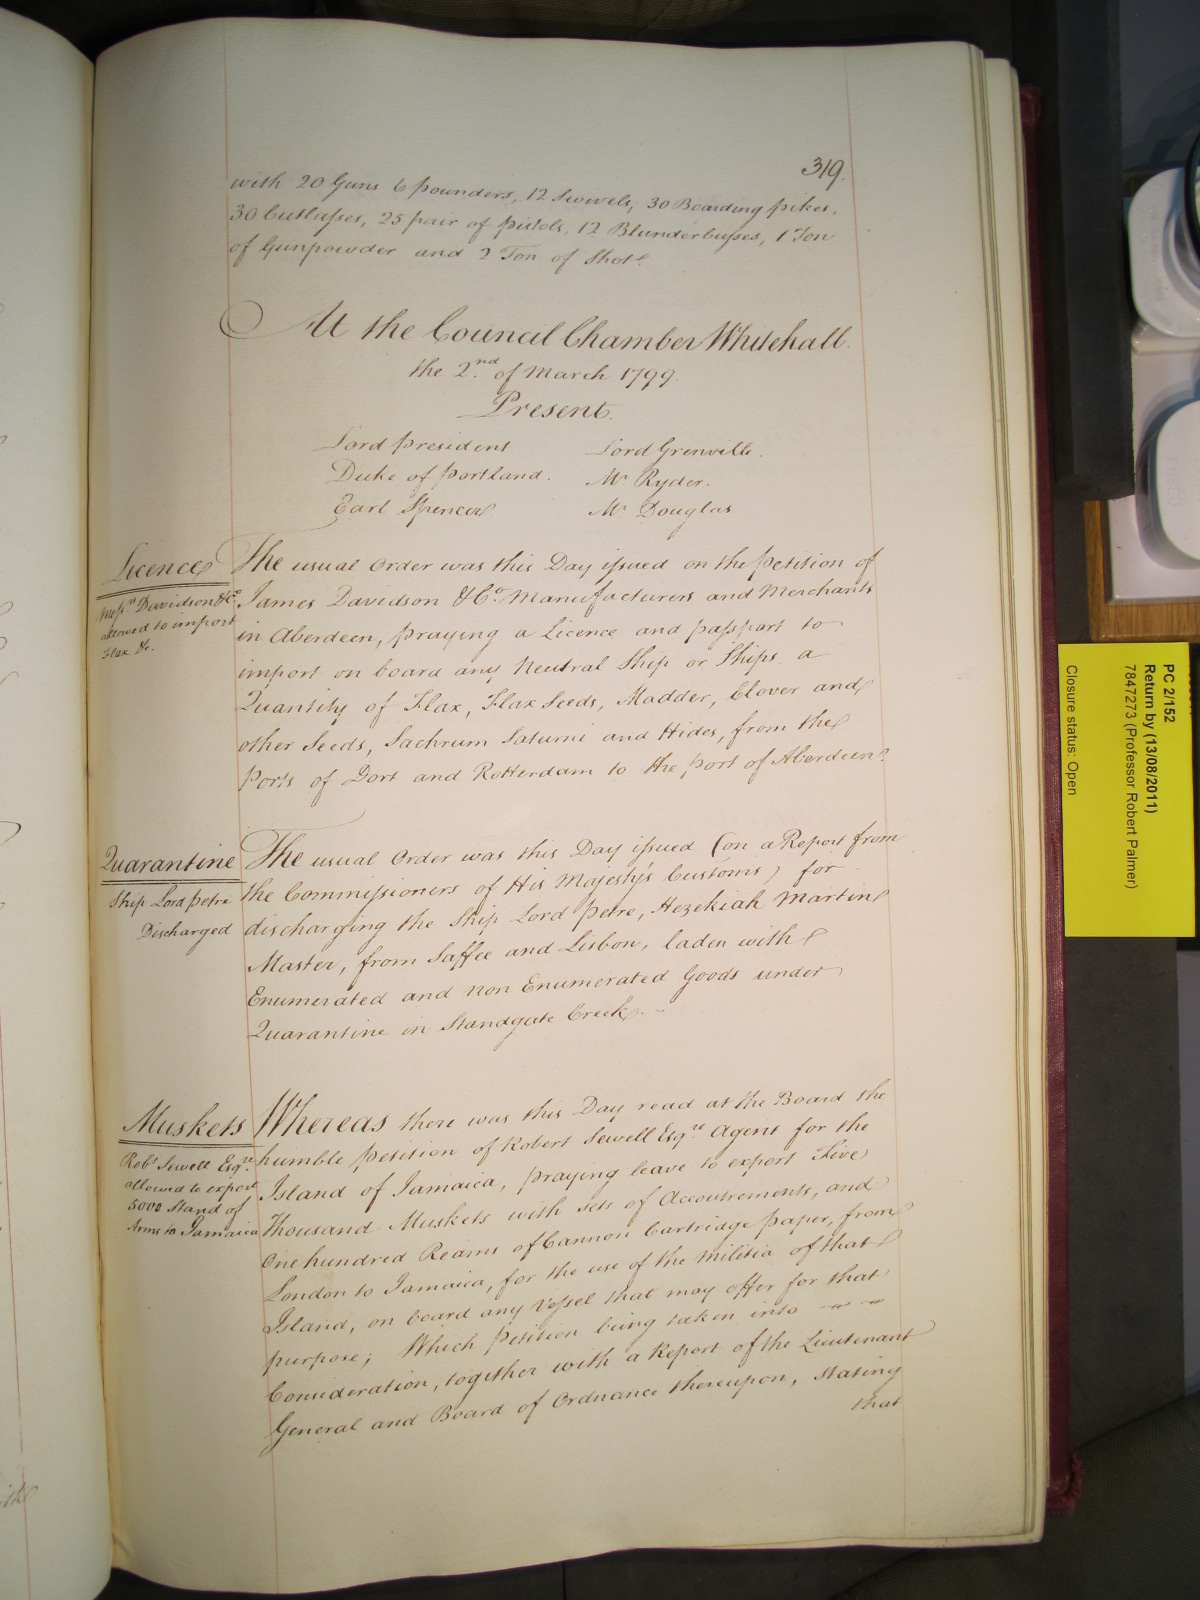 319.
with 20 Guns 6 pounders, 12 Swivels, 30 Boarding pikes,
30 Cutlasses, 25 pair of pistols, 12 Blunderbusses, 1 Ton
of Gunpowder and 2 Ton of Shot.
At the Council Chamber Whitehall.
the 2.nd of March 1799.
Present.
Lord president Lord Grenville.
Duke of portland. Mr Ryder.
Earl Spencer Mr Douglas
Licence
Messrs Davidson & Co
allowed to import
Flax &c.
The usual Order was this Day issued on the petition of
James Davidson & Co. Manufacturers and Merchants
in Aberdeen, praying a Licence and passport to
import on board any Neutral Ship or Ships a
Quantity of Flax, Flax Seeds, Madder, Clover and
other Seeds, Sachrum Saturni and Hides, from the
Ports of Dort and Rotterdam to the port of Aberdeen.
Quarantine
Ship Lord petre
Discharged
The usual Order was this Day issued (on a Report from
the Commissioners of His Majesty's Customs) for
discharging the Ship Lord Petre, Hezekiah Martin
Master, from Saffee and Lisbon, laden with
Enumerated and non Enumerated Goods under
Quarantine in Standgate Creek.
Muskets
Robt Sewell Esqre
allowed to export
5000 Stand of
Arms to Jamaica
Whereas there was this Day read at the Board the
humble petition of Robert Sewell Esqre Agent for the
Island of Jamaica, praying leave to export Five
Thousand Muskets with sets of Accoutrements, and
One hundred Reams of Cannon Cartridge paper, from
London to Jamaica, for the use of the Militia of that
Island, on board any Vessel that may offer for that
purpose; Which petition being taken into
Consideration, together with a Report of the Lieutenant
General and Board of Ordnance thereupon, stating
that
PC 2/152
Return by (13/08/2011)
7847273 (Professor Robert Palmer)
Closure status: Open